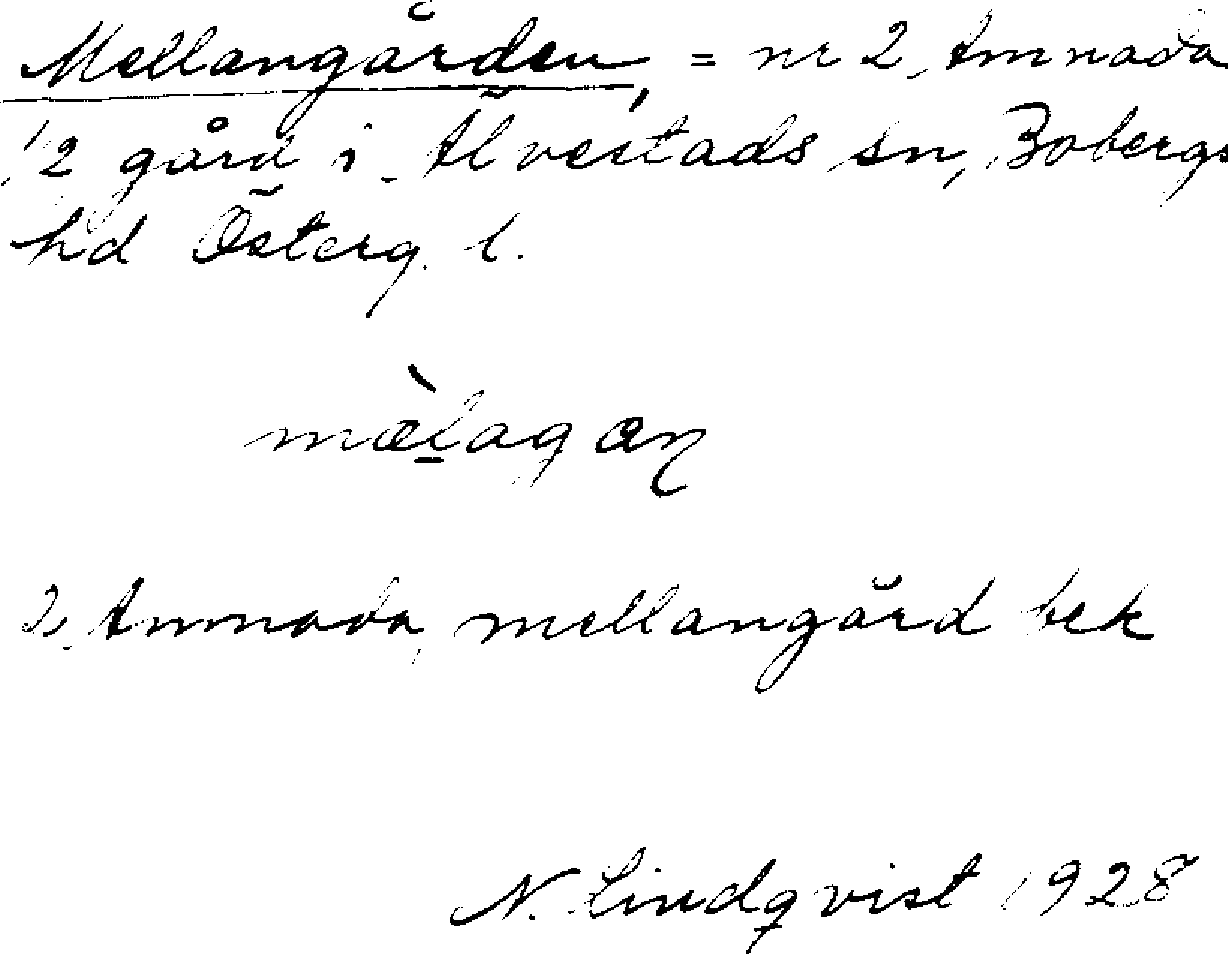 Mellangården, = nr 2 Amnada
1/2 gård i Älvestads sn, Bobergs
hd Österg. l.
mæ̀lagan
2, Amnada, mellangård bek
N. Lindqvist 1928